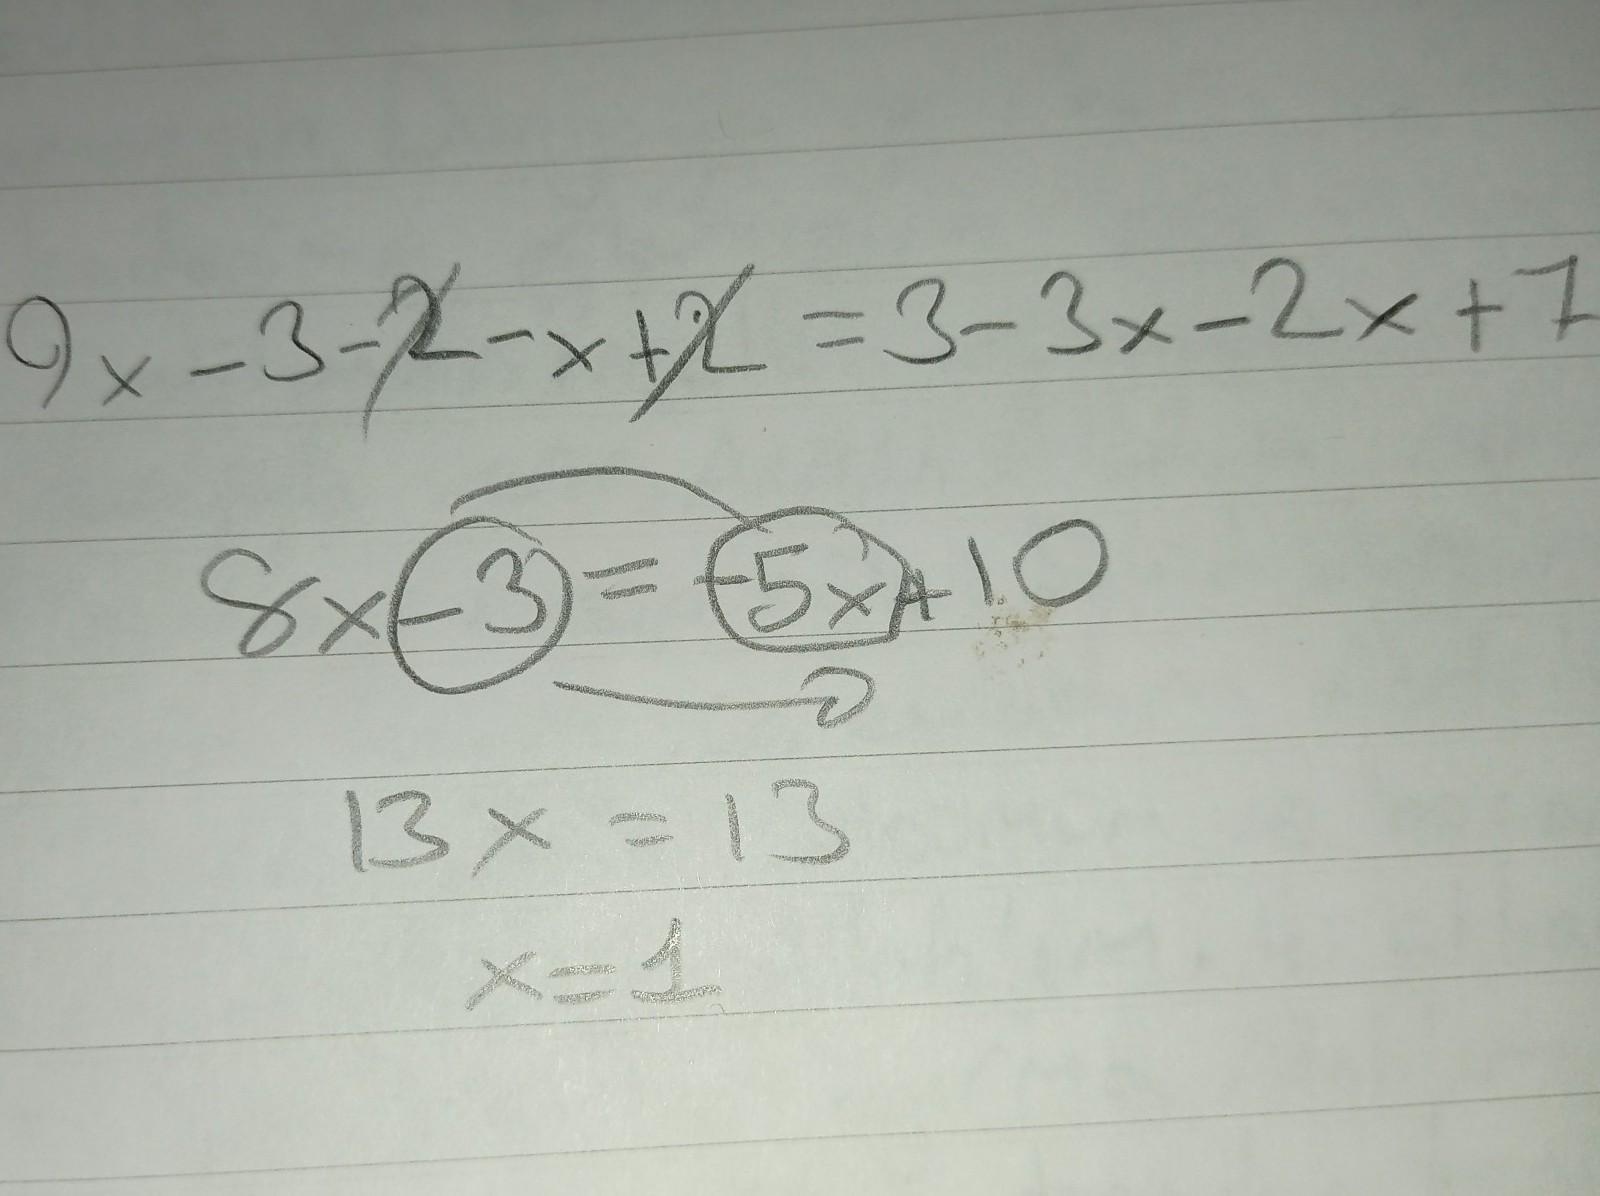 9x - 3 - 2 - x + 2 = 3 - 3x - 2x + 7
8x - 3 = -5x + 10
13x = 13
x = 1